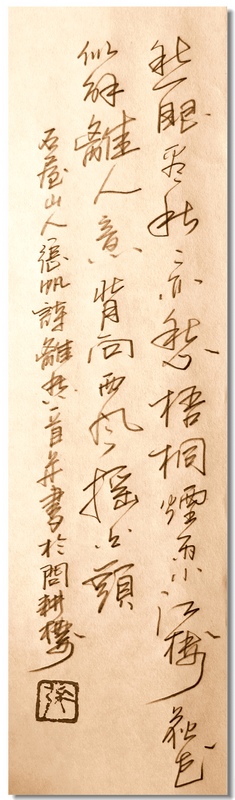 愁眼看秋〻亦愁梧桐煙江樓花
似解離人意背向西風搖白頭
石屋山人張帆離愁一首并書於問耕樓
張